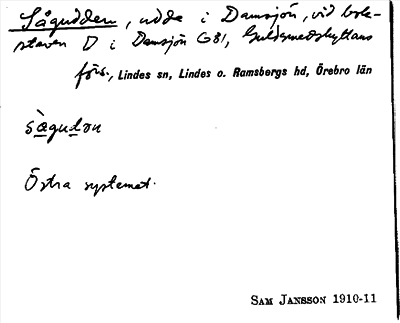 Sågudden, udde i Damsjön, vid bok-
staven D i Damsjön G81, Guldsmedshyttans
förs., Lindes sn, Lindes o. Ramsbergs hd, Örebro län
sàgudɷn
Östra systemet.
SAM JANSSON 1910-11